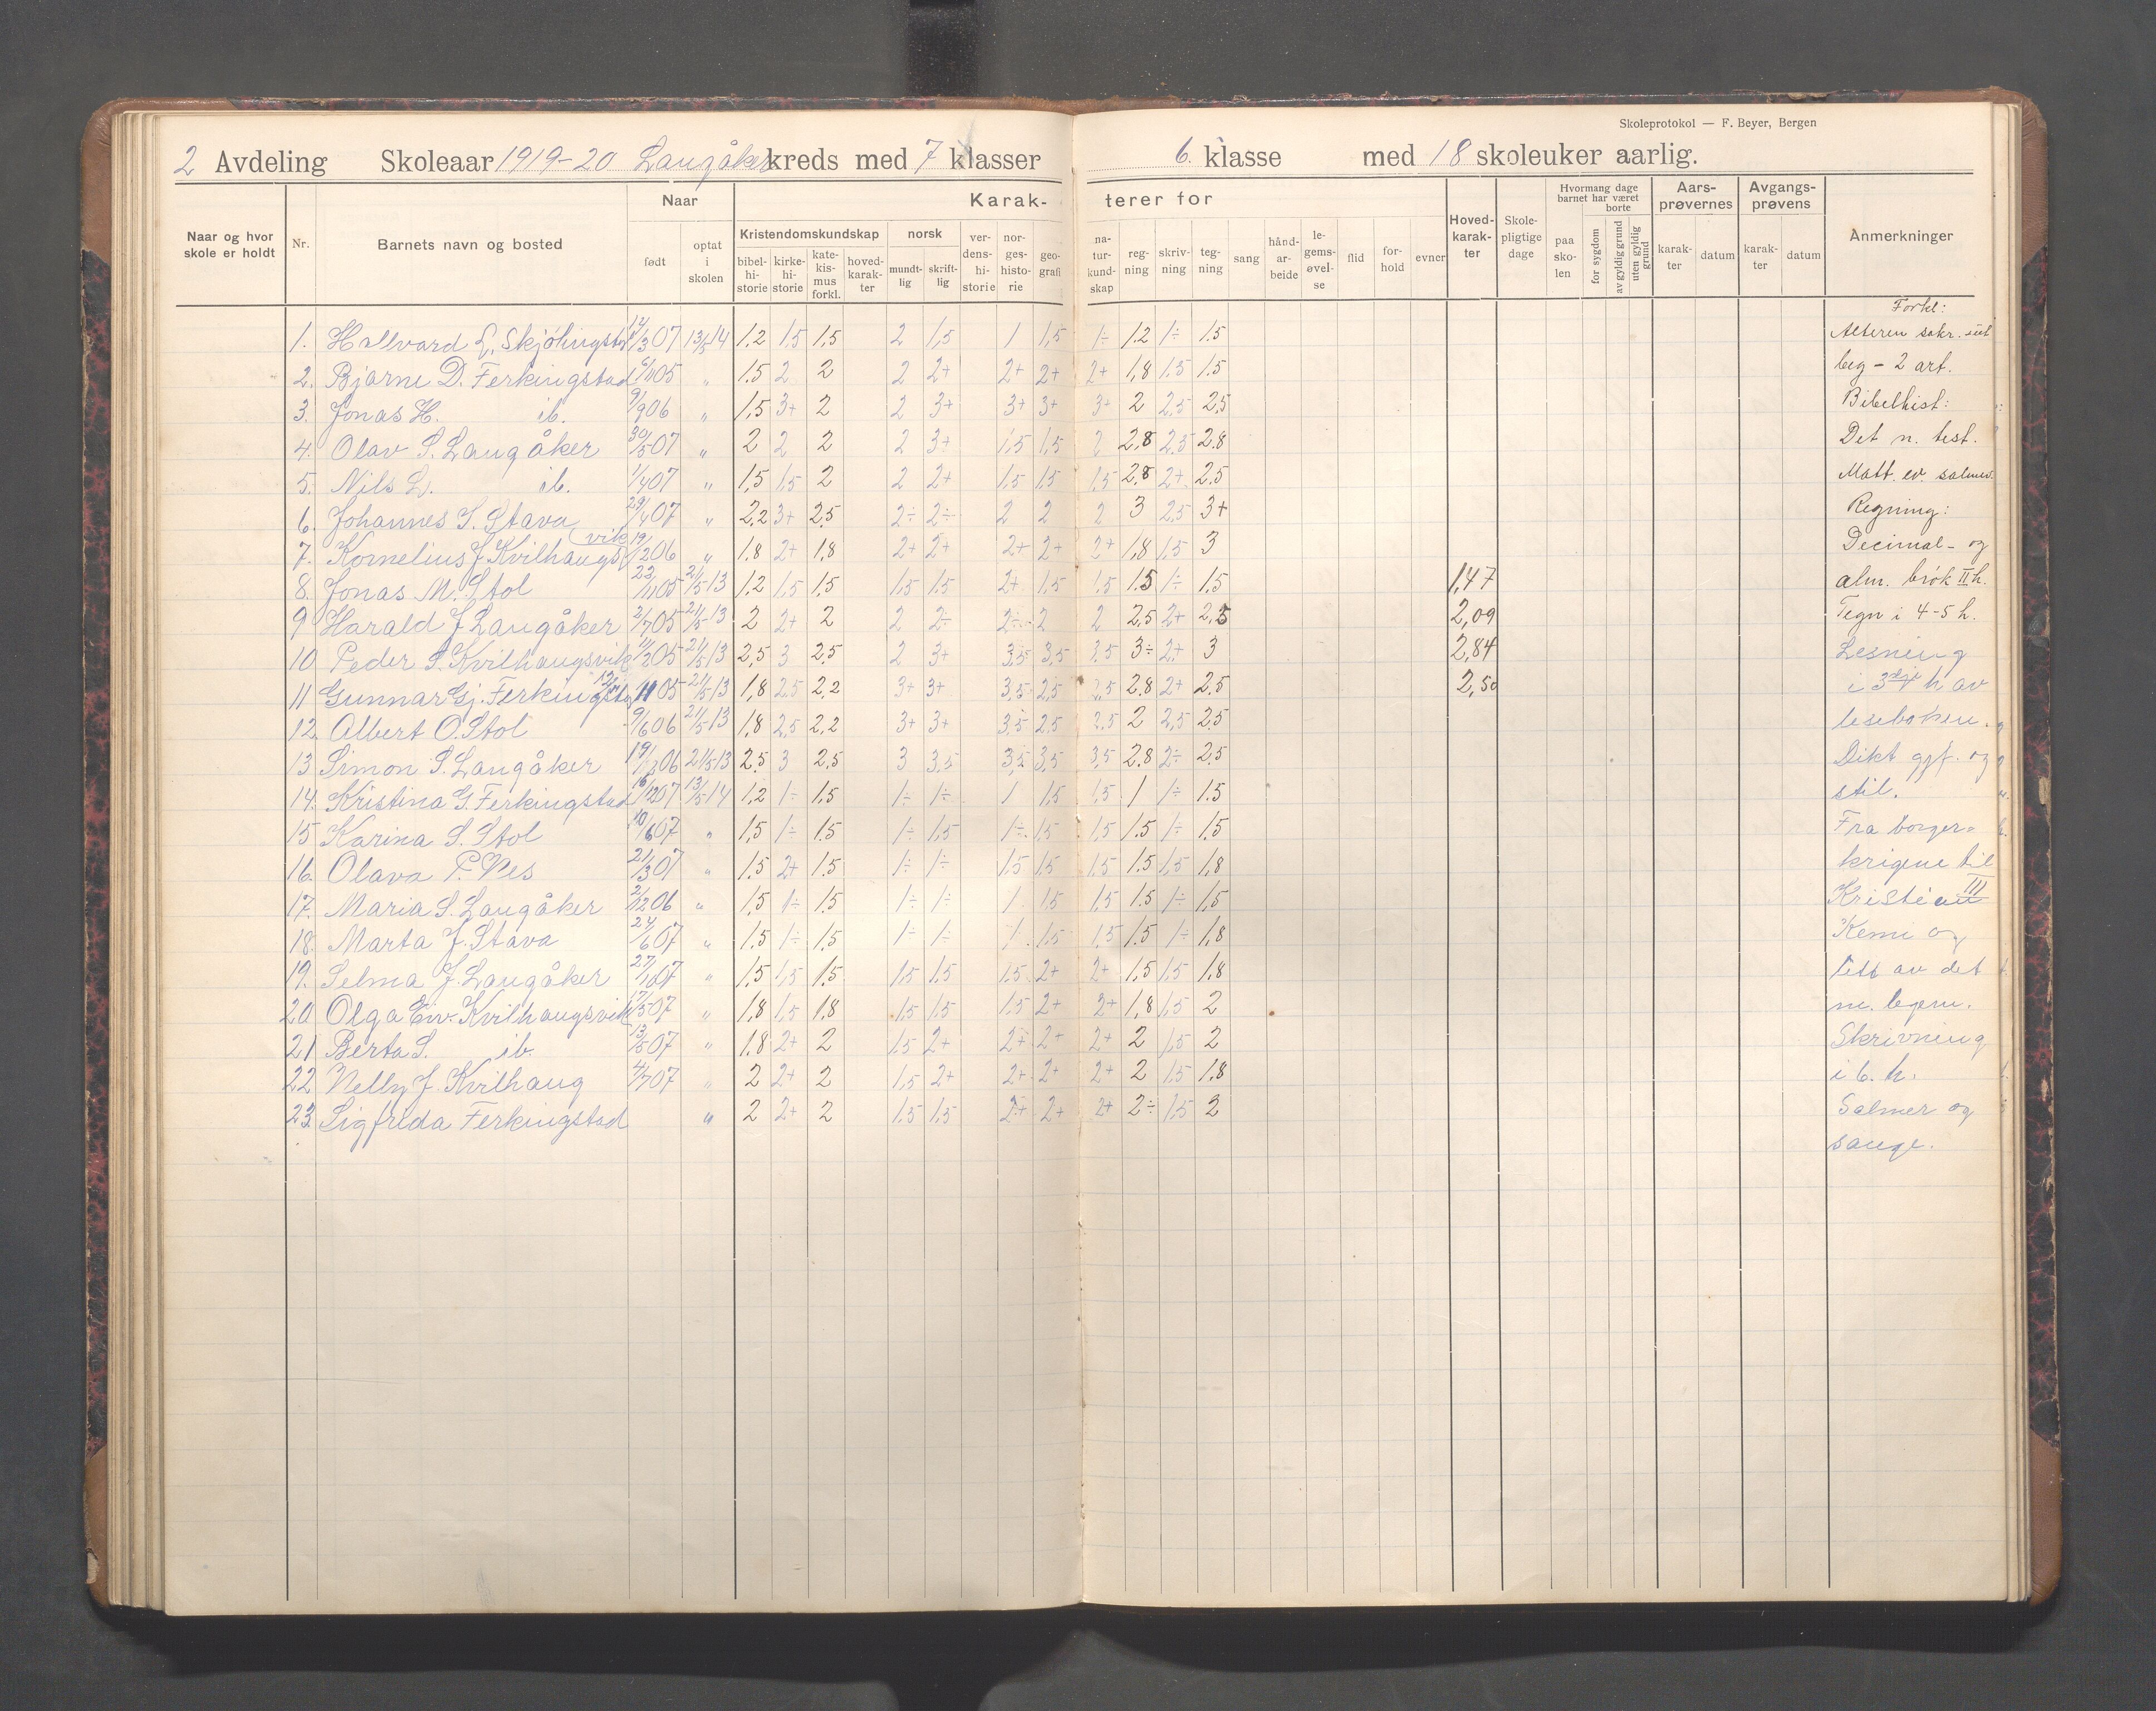 Skoleprotokol — F. Beyer, Bergen
2 Avdeling Skoleaar 1919-20 Langåker kreds med 7 klasser 6. klasse med 18 skoleuker aarlig.
Naar og hvor skole er holdt Nr. Barnets navn og bosted Naar født optat i skolen Karak- terer for Hoved-karak-ter Skole-pligtige dage Hvormang dage barnet har været paa sko-len borte for sygdom av gyldig grund uten gyldig grund Aars-prøvernes karak-ter datum Avgangs-prøvens karak-ter datum Anmerkninger
Kristendomskundskap bibel-hi-storie kirke-hi-storie kate-kis-mus forkl. hoved-karak-ter norsk mundt-lig skrift-lig ver-dens-hi-storie nor-ges-histo-rie geo-grafi na-tur-kund-skap reg-ning skriv-ning teg-ning sang hånd-ar-beide le-gems-øvel-se flid for-hold evner
Forkl:
1. Hallvard L. Skjølingstad 12/3 07 13/5 14 1.2 1.5 1.5 2 1,5 1 1,5 1÷ 1.2 1÷ 1.5 Alteren sakr. sút
2. Bjarne D. Ferkingstad 16/11 05 " 1.5 2 2 2 2+ 2+ 2+ 2+ 1,8 1.5 1.5 beg - 2 art.
3. Jonas H. ib. 9/9 06 " 1,5 3+ 2 2 3+ 3+ 3+ 3+ 2 2,5 2,5 Bibelhist:
4. Olav S. Langåker 30/5 07 " 2 2 2 2 3+ 1,5 1,5 2 2.8 2.5 2.8 Det n. test.
5. Nils L. ib. 1/4 07 " 1,5 1.5 2 2 2+ 1.5 1.5 1.5 2.8 2+ 2.5 Matt. ev. salmer.
6. Johannes S. Stava 29/4 07 " 2.2 3+ 2.5 2÷ 2÷ 2 2 2 3 2.5 3+ Regning:
7. Kornelius J. Kvilhaugs(vik 19/12 06 " 1.8 2+ 1.8 2+ 2+ 2+ 2+ 2+ 1,8 1.5 3 Decimal- og
8. Jonas M. Stol 22/11 05 21/5 13 1.2 1.5 1.5 1.5 1.5 2+ 1.5 1.5 1.5 1÷ 1.5 1,47 alm. brök II h.
9 Harald J Langåker 2/7 05 21/5 13 2 2+ 2 2 2÷ 2÷ 2 2 2.5 2+ 2,5 2,09 Tegn i 4-5 h.
10 Peder S. Kvilhaugsvik 11/2 05 21/5 13 2.5 3 2.5 2 3+ 3.5 3,5 3.5 3÷ 2+ 3 2,84 Lesning
11 Gunnar Gj. Ferkingstad 13/11 05 21/5 13 1,8 2.5 2.2 3+ 3+ 3,5 2,5 2.5 2.8 2+ 2.5 2,50 i 3dje h av
12. Albert O. Stol 9/6 06 21/5 13 1,8 2,5 2,2 3+ 3+ 3.5 2.5 2.5 2 2,5 2.5 leseboken.
13. Simon S. Langåker 19/3 06 21/5 13 2.5 3 2.5 3 3.5 3,5 3,5 3,5 2.8 2÷ 2.5 Dikt ggf. og
14. Kristina G. Ferkingstad 16/12 07 13/5 14 1.2 1÷ 1,5 1÷ 1÷ 1 1,5 1.5 1 1÷ 1.5 stil.
15 Karina S. Stol 10/6 07 " 1,5 1÷ 1.5 1÷ 1,5 1÷ 1.5 1.5 1.5 1÷ 1.5 Fra borger=
16. Olava P. Nes 21/3 07 " 1.5 2+ 1.5 1÷ 1÷ 1.5 1.5 1.5 1.5 1.5 1,8 krigene til
17. Maria S. Langåker 2/12 06 " 1,5 1÷ 1.5 1÷ 1÷ 1 1,5 1.5 1.5 1÷ 1,5 Kristian III
18. Marta J. Stava 24/6 07 " 1.5 1÷ 1.5 1÷ 1÷ 1 1.5 1.5 1.5 1÷ 1,8 Kemi og
19. Selma J. Langåker 27/10 07 " 1.5 1,5 1.5 1.5 1.5 1.5 2+ 2+ 1.5 1.5 1.8 litt av det
20 Olga Eiv. Kvilhaugsvik 17/5 07 " 1.8 1,5 1.8 1.5 1.5 1.5 2+ 2+ 1,8 1.5 2 m. legem.
21 Berta S. ib. 13/5 07 " 1.8 2+ 2 1.5 2+ 2+ 2+ 2+ 2 1.5 2 Skrivning
22 Nelly J. Kvilhaug 4/7 07 " 2 2+ 2 1,5 2+ 2+ 2+ 2+ 2 1.5 1.8 i 6. h.
23. Sigfrida Ferkingstad " 2 2+ 2 1.5 1.5 2+ 2+ 2+ 2÷ 1.5 2 Salmer og
sange.